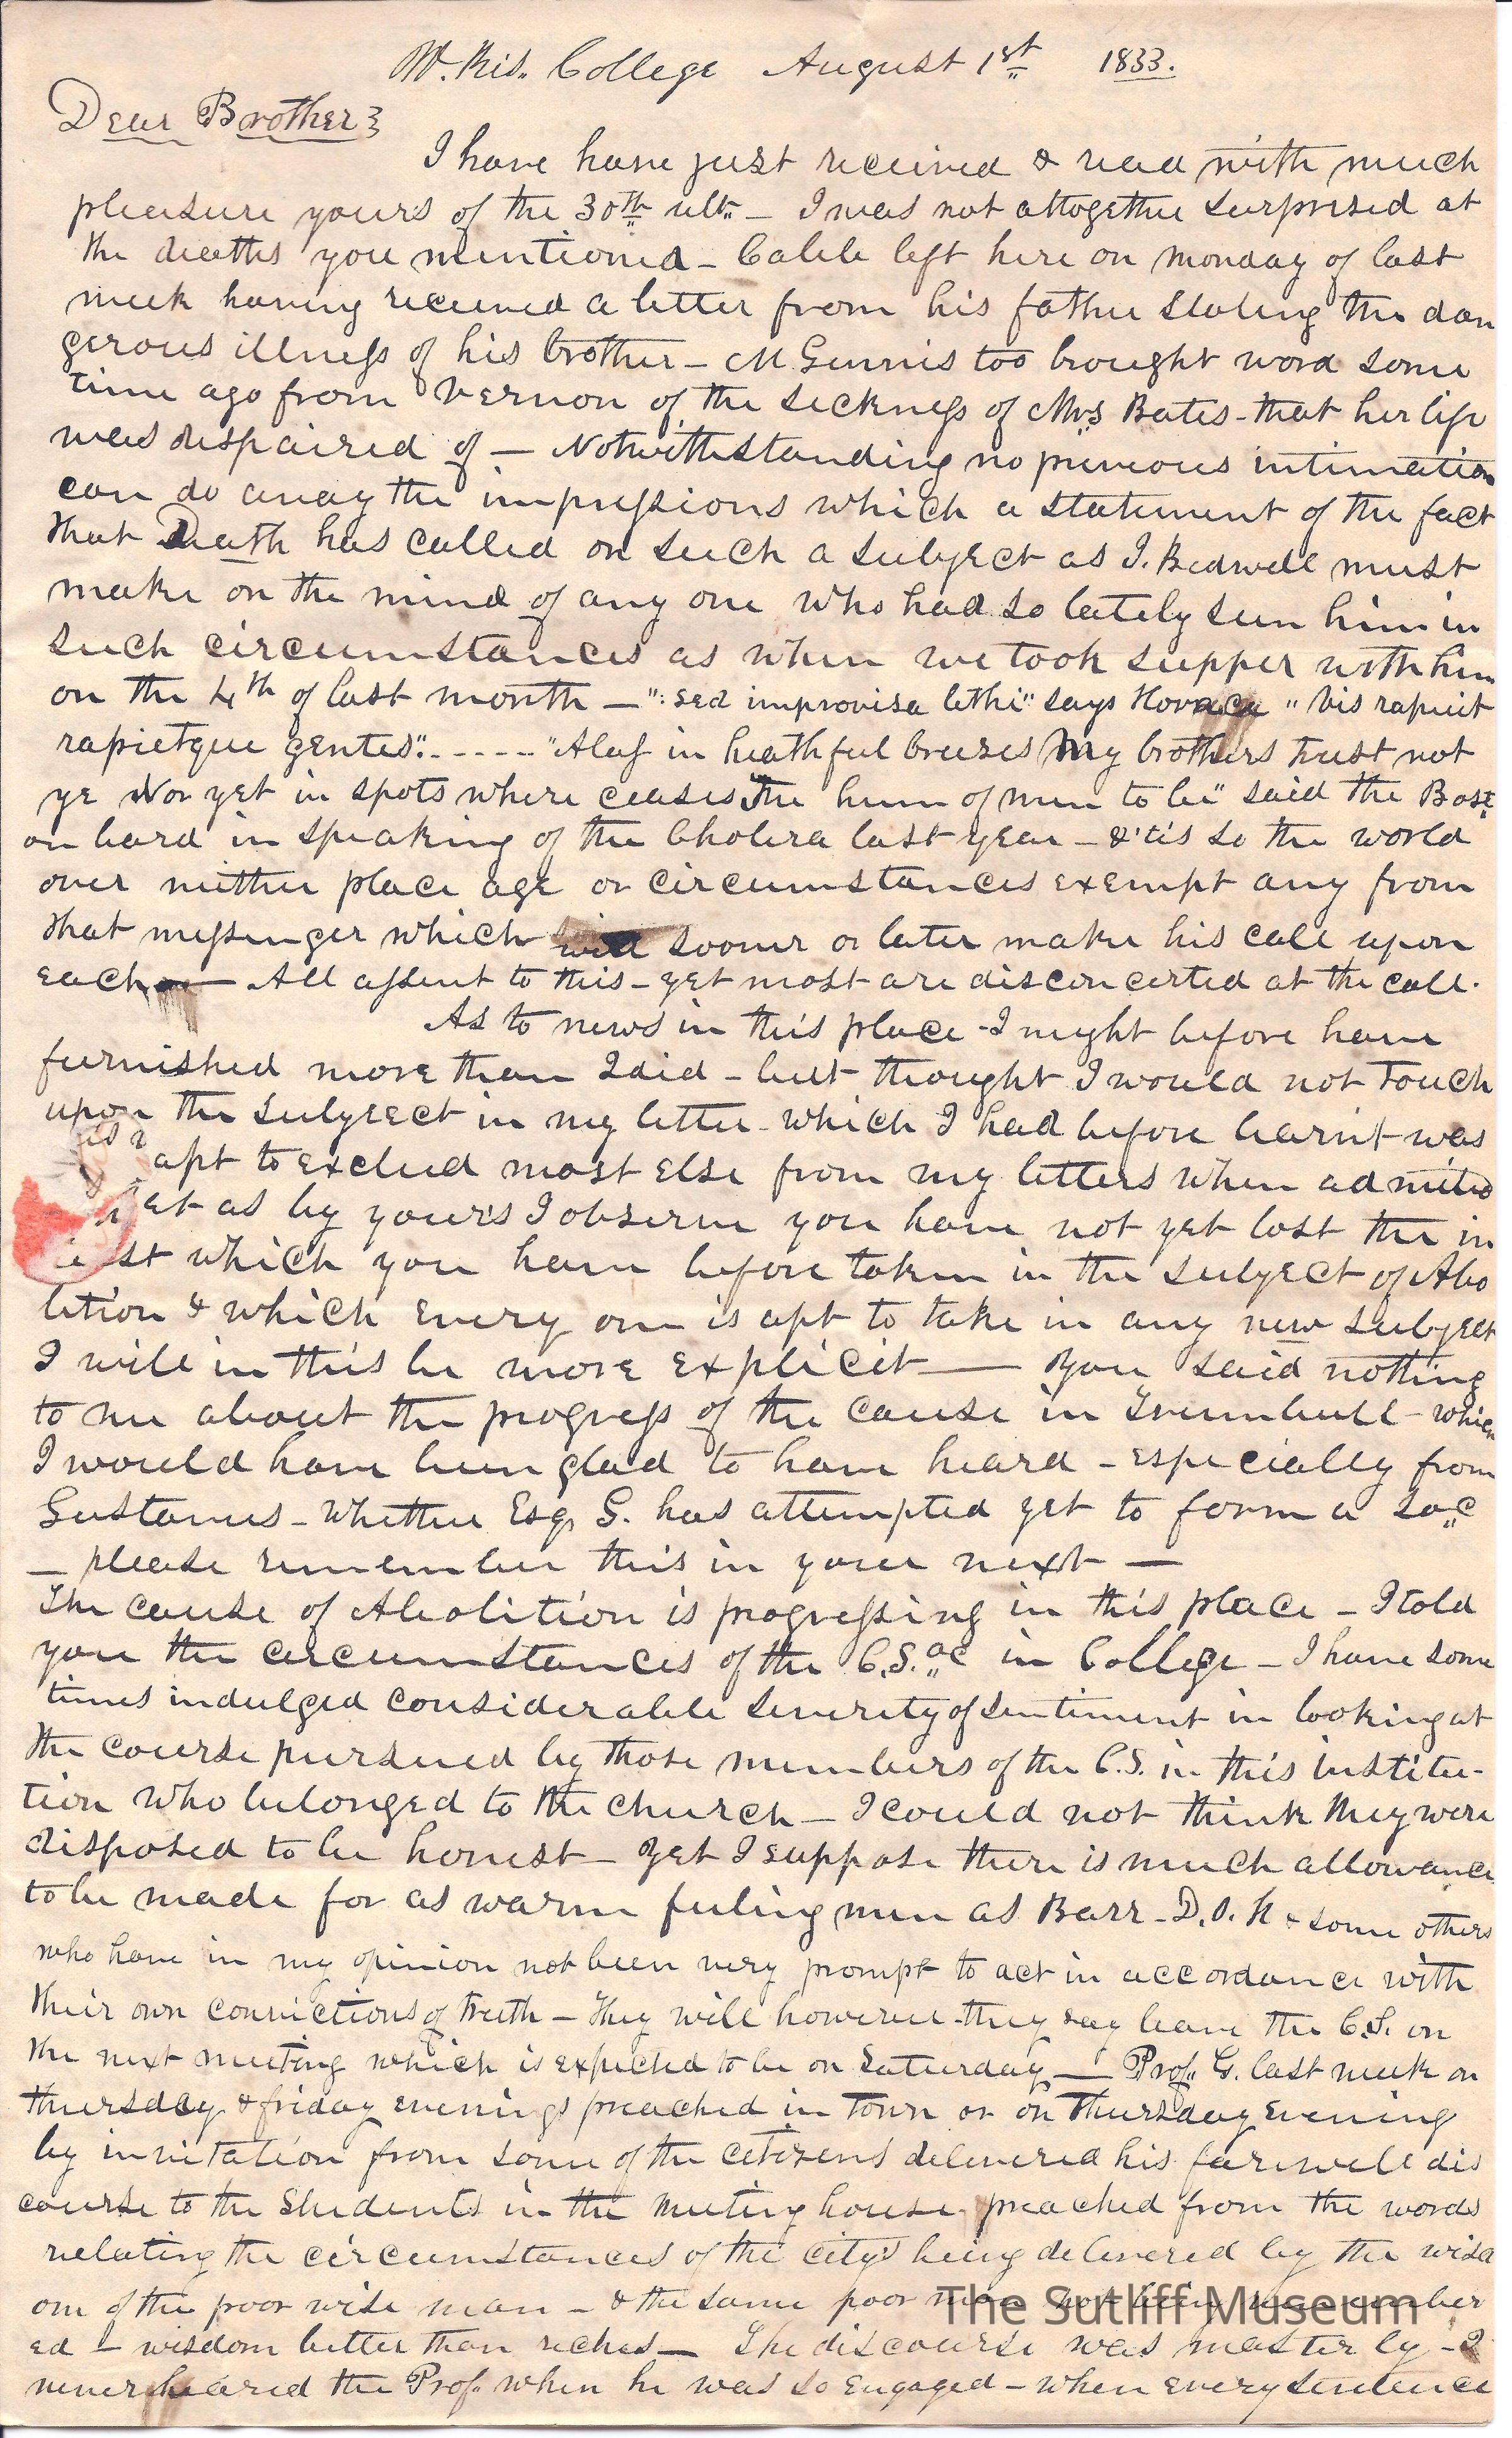 W. Res. College August 1st 1833.
Dear Brother
I have have just received & read with much
pleasure yours of the 30th ult. – I was not altogether surprised at
the deaths you mentioned – Caleb left here on Monday of last
week having received a letter from his father stating the dan
gerous illness of his brother – McGinnis too brought word some
time ago from Vernon of the sickness of Mrs Bates – that her life
was dispaired of – Notwithstanding no previous intimation
can do away the impressions which a statement of the fact
that Death has called on such a subject as I. Bidwell must
make on the mind of any one who had so lately seen him in
such circumstances as when we took supper with him
on the 4th of last month – ": sed improvisa lethi" says Horace "vis rapuit
rapietque gentes". - - - - - "Alas in heathful breezes My brothers trust not
ye Nor yet in spots where ceases The hum of men to be" said the Bost
on bard in speaking of the Cholera last year – & 'tis so the world
over neither place age or circumstances exempt any from
that messenger which will sooner or later make his call upon
each – All assent to this – yet most are disconcerted at the call.
As to news in this place – I might before have
furnished more than I did – but thought I would not touch
upon the subject in my letter – which I had before learnt was
apt to exclud most else from my letters when admitted
as by yours I observe you have not yet lost the in
which you have before taken in the subject of Abo
lition & which every one is apt to take in any new subject
I will in this be more explicit — You said nothing
to me about the progress of the cause in Trumbull – which
I would have been glad to have heard – especially from
Gustavus – Whether Esq. G. has attempted yet to form a Soc
– please remember this in your next —
The cause of Abolition is progressing in this place – I told
you the circumstances of the C. Soc in College – I have some
times indulged considerable severity of sentiment in looking at
the course pursued by those members of the C.S. in this institu-
tion who belonged to the church – I could not think they were
disposed to be honest – yet I suppose there is much allowance
to be made for as warm feeling men as Barr – D. O. H & some others
who have in my opinion not been very prompt to act in accordance with
their own convictions of truth – They will however they say leave the C.S. on
the next meeting which is expected to be on Saturday — Prof. G. last week on
thursday & friday evenings preached in town or on Thursday evening
by invitation from some of the citizens delivered his farewell dis
course to the Students in the meeting house – preached from the words
relating the circumstances of the city's being delivered by the wisd
om of the poor wise man – & the same poor man not being remember
The Sutliff Museum
ed – wisdom better than riches — The discourse was masterly – I
never heared the Prof. when he was so engaged – when every sentence